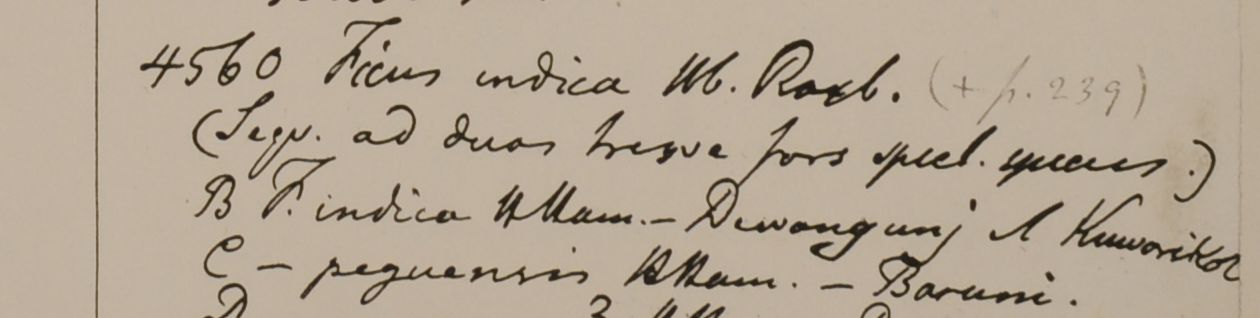 4560 Ficus indica Hb. Roxb. (+ p. 239)
(Sequ. ad duas tresve fors spect. species.)
B F. indica HHam. – Dewangunj & Kuwarikol
C – peguensis HHam. – Baruni.